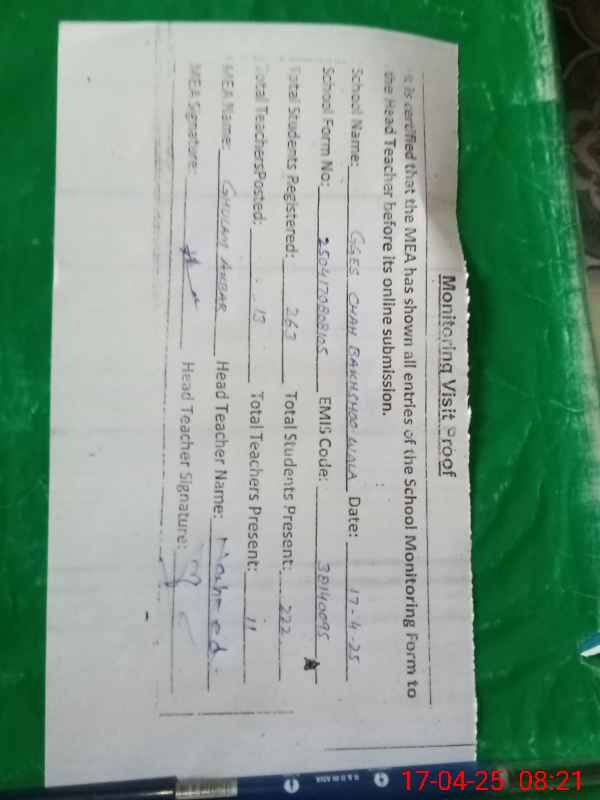 Monitoring Visit Proof
It is certified that the MEA has shown all entries of the School Monitoring Form to
the Head Teacher before its online submission.
School Name: GGES CHAH BAKHSHOO WALA Date: 17-4-25
School Form No: 2504170808105 EMIS Code: 38140095
Total Students Registered: 263 Total Students Present: 222
Total TeachersPosted: 13 Total Teachers Present: 11
MEA Name: GHULAM AKBAR Head Teacher Name:
MEA Signature: Head Teacher Signature:
17-04-25 08:21